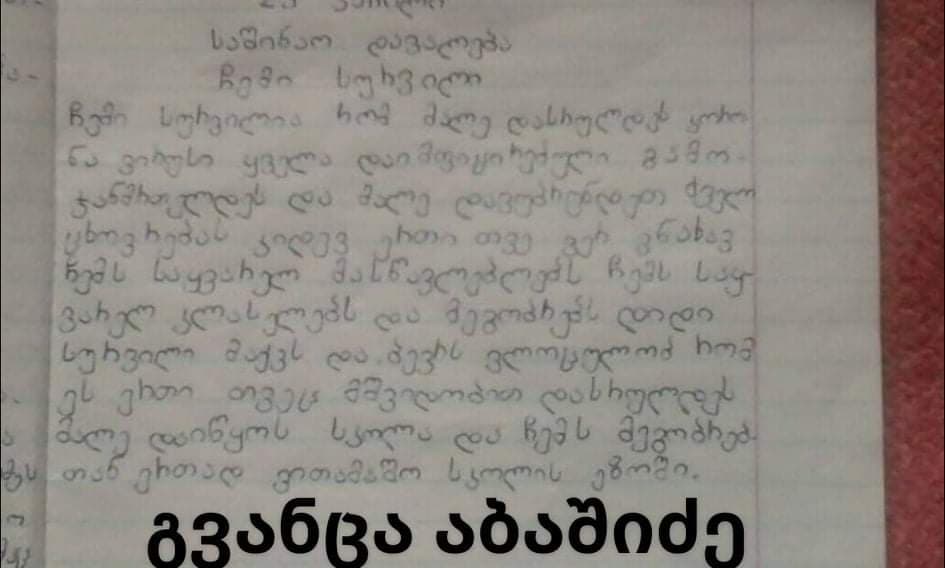 საშინაო დავალება
ჩემი სურვილი
ჩემი სურვილია რომ მალე დასრულდეს კორო
ნა ვირუსი ყველა დაინფიცირებული გამო-
ჯანმრთელდეს და მალე დავუბრუნდეთ ძველ
ცხოვრებას კიდევ ერთი თვე ვერ ვნახავ
ჩემს საყვარელ მასწავლებლებს ჩემს საყ
ვარელ კლასელებს და მეგობრებს დიდი
სურვილი მაქვს და ბევრს ვლოცულობ რომ
ეს ერთი თვეც მშვიდობით დასრულდეს
მალე დაიწყოს სკოლა და ჩემს მეგობრებ-
თან ერთად ვითამაშო სკოლის ეზოში.
გვანცა აბაშიძე